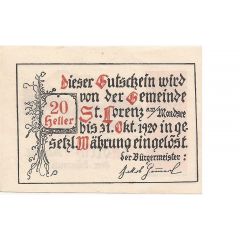 Dieser Gutschein wird
von der Gemeinde
20
Heller
St. Lorenz am/Mondsee
bis 31. Okt. 1920 in ge-
setzl. Währung eingelöst.
der Bürgermeister: